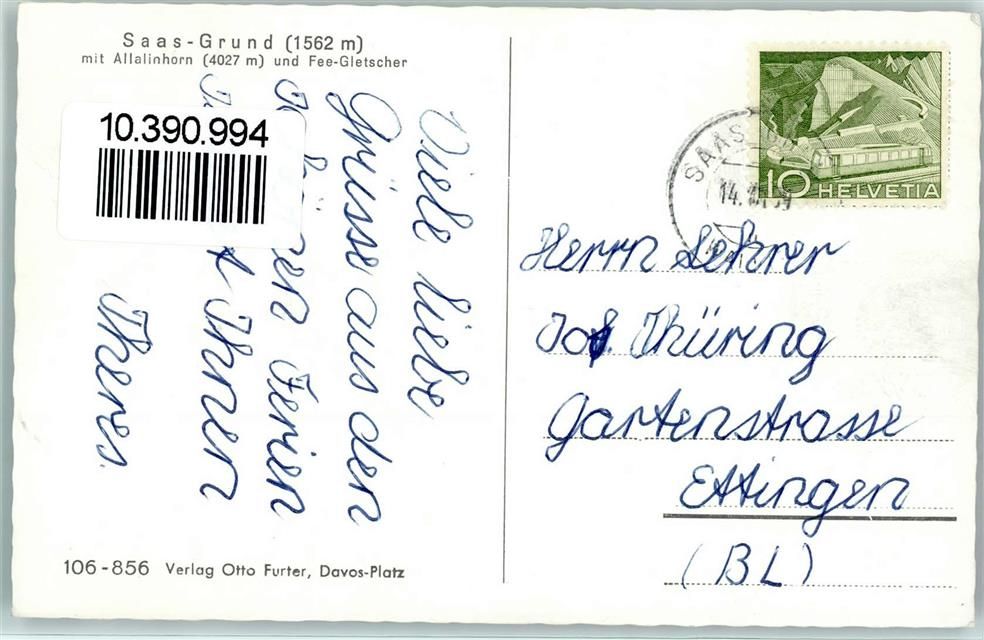 Saas-Grund (1562 m)
mit Allalinhorn (4027 m) und Fee-Gletscher
10.390.994
Viele liebe
Grüsse aus den
Ferien
Ihnen
Theres.
106-856 Verlag Otto Furter, Davos-Platz
SAAS
14.
10 HELVETIA
Herrn Lehrer
Jos. Thüring
Gartenstrasse
Ettingen
(BL)